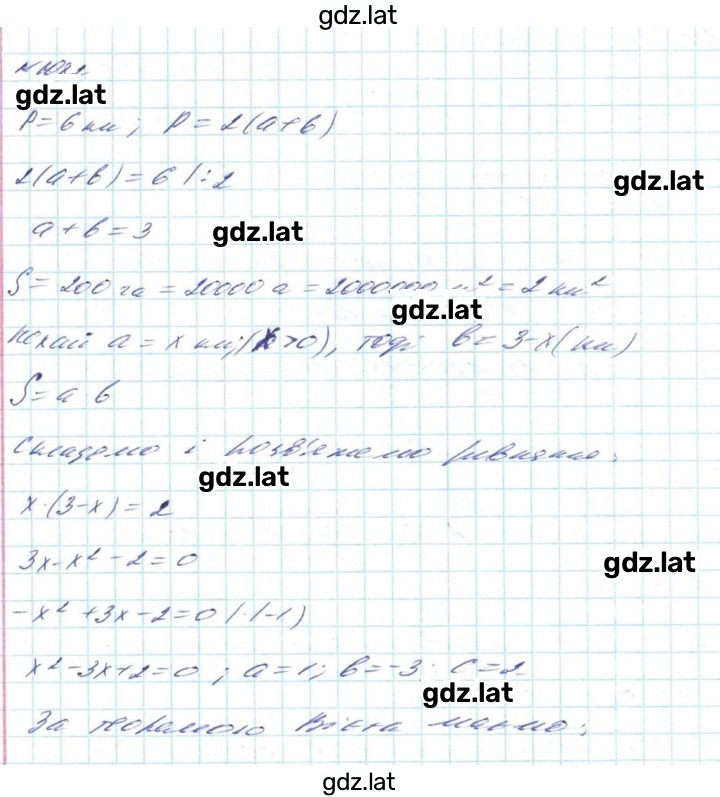 gdz.lat
№ 1029.
gdz.lat
P = 6 км; P = 2(a+b)
2(a+b) = 6 | : 2
gdz.lat
a + b = 3
gdz.lat
S = 200 га = 20000 а = 2000000 м² = 2 км²
gdz.lat
Нехай a = x км; (x > 0), тоді b = 3-x (км)
S = a b
Складемо і розв'яжемо рівняння:
gdz.lat
x·(3-x) = 2
3x - x² - 2 = 0
gdz.lat
-x² + 3x - 2 = 0 | ·(-1)
x² - 3x + 2 = 0; a = 1; b = -3; c = 2.
gdz.lat
За теоремою Вієта маємо:
gdz.lat